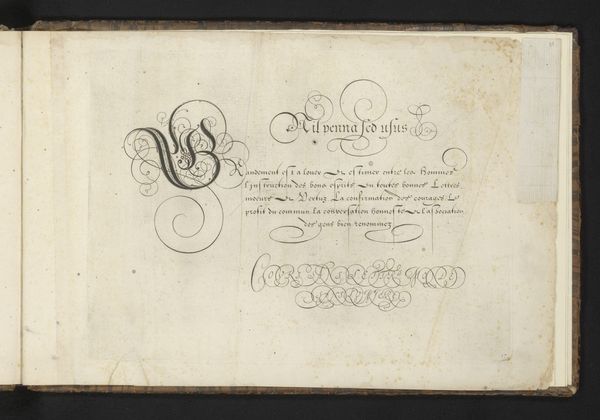 Nil penna sed usus
Grandement est a louer & estimer entre les Hommes
l'instruction des bons esprits En toutes bonnes Lettres
moeurs & Vertuz La confirmation des courages Le
profit du commun la conversation honneste & l'association
des gens bien renommez